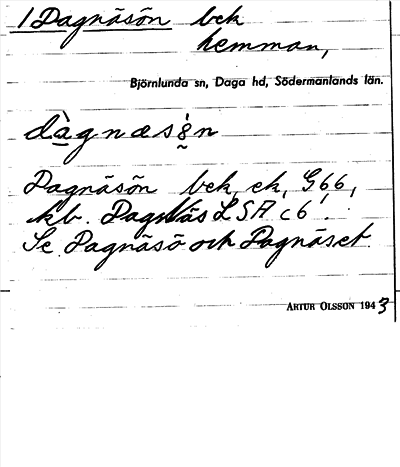 1 Dagnäsön bek
hemman,
Björnlunda sn, Daga hd, Södermanlands län.
dàgnæsə̀n
Dagnäsön bek, ek, G66,
kb. Dagnäs LSA c6.
Se Dagnäsö och Dagnäset.
ARTUR OLSSON 1943